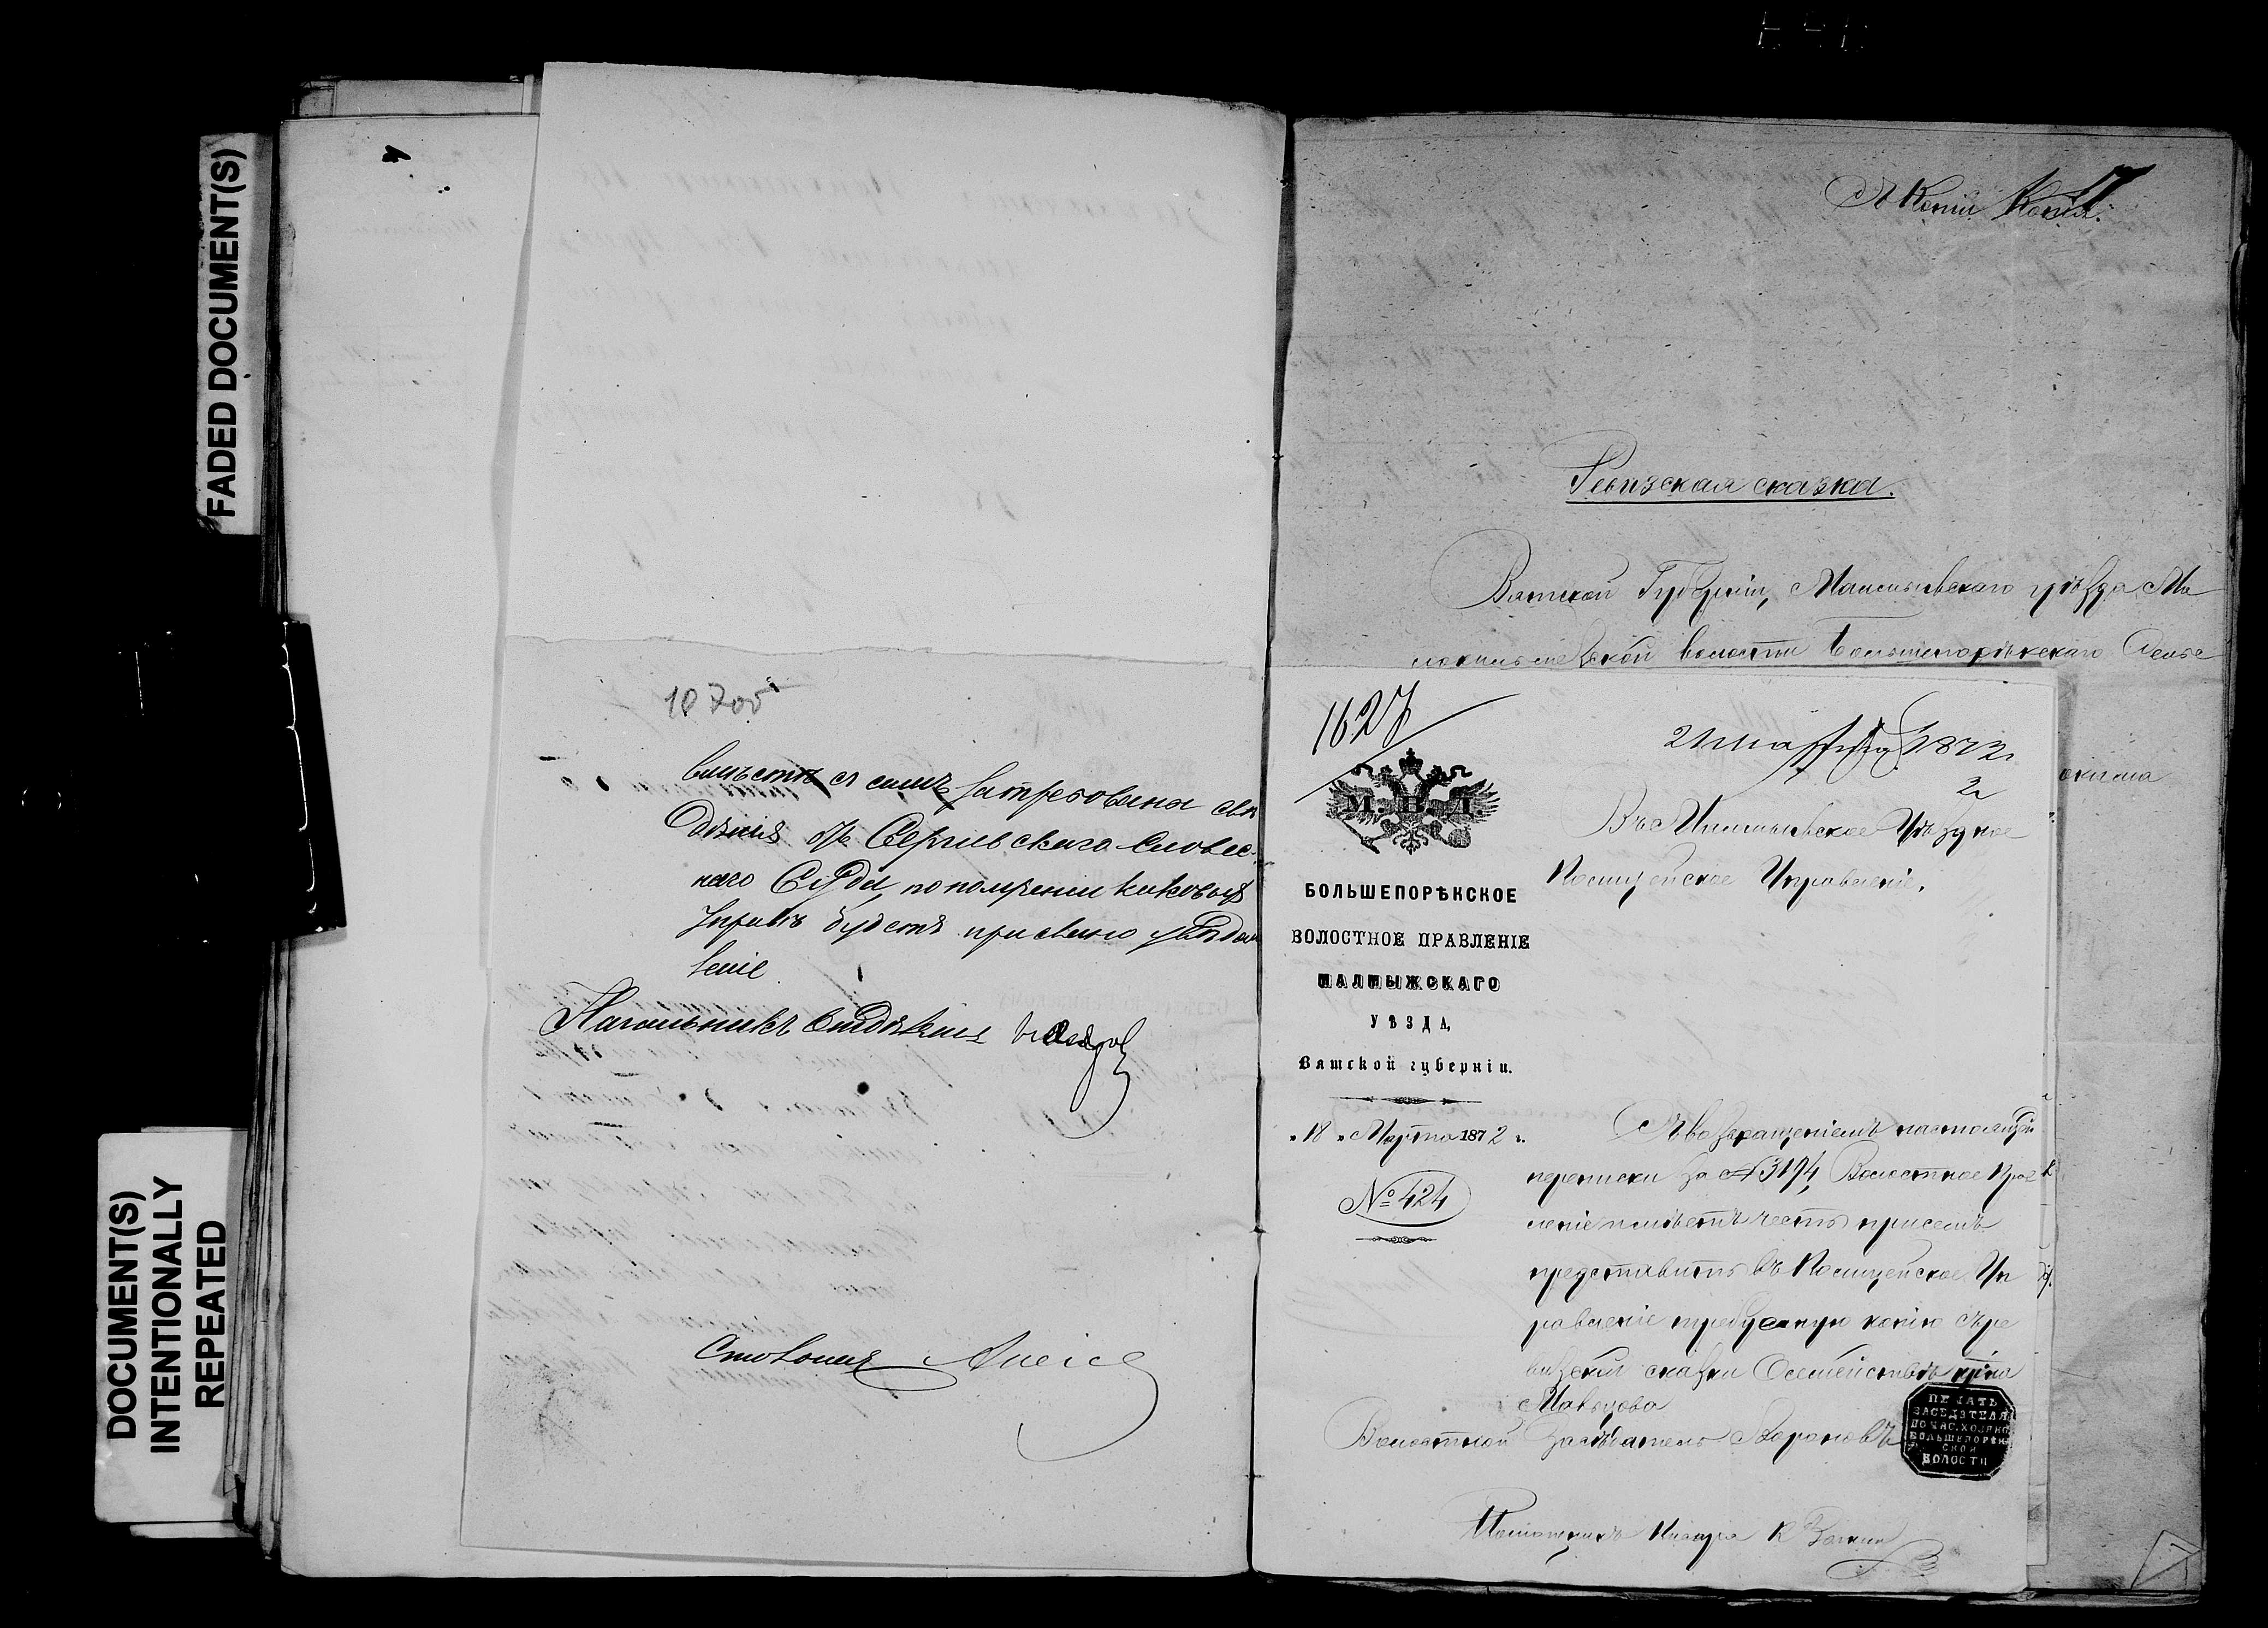 FADED DOCUMENT(S)
DOCUMENT(S)
INTENTIONALLY
REPEATED
вмѣстѣ съ симъ затребованы свѣ
дѣнія отъ Сергіевскаго Словес-
наго Суда, по полученіи каковыхъ
Управѣ будетъ прислано увѣдом
леніе
Начальникъ Отдѣленія
Столонач.
Съ Копіи Копія.
17
Ревизская сказка.
Вятской Губерніи, Малмыжскаго уѣзда
волости Большепорѣкскаго Сельс
1627
М. В. Д.
БОЛЬШЕПОРѢКСКОЕ
ВОЛОСТНОЕ ПРАВЛЕНІЕ
МАЛМЫЖСКАГО
УѢЗДА,
Вятской губерніи.
„18 „ Марта 1872 г.
№ 424
21 марта 1872
Въ Малмыжское Уѣздное
Полицейское Управленіе.
Съ возвращеніемъ настоящей
переписки за № 3194, Волостное Прав
леніе имѣетъ честь при семъ
представить въ Полицейское Уп
равленіе требуемую копію съ ре
визской сказки о семействѣ кр-на
Волостной Засѣдатель
ПЕЧАТЬ
ЗАСЕДАТЕЛЯ
ПО ЧАС. ХОЗЯЙС
БОЛЬШЕПОРѢК
СКОЙ
ВОЛОСТИ
Помощникъ Писаря